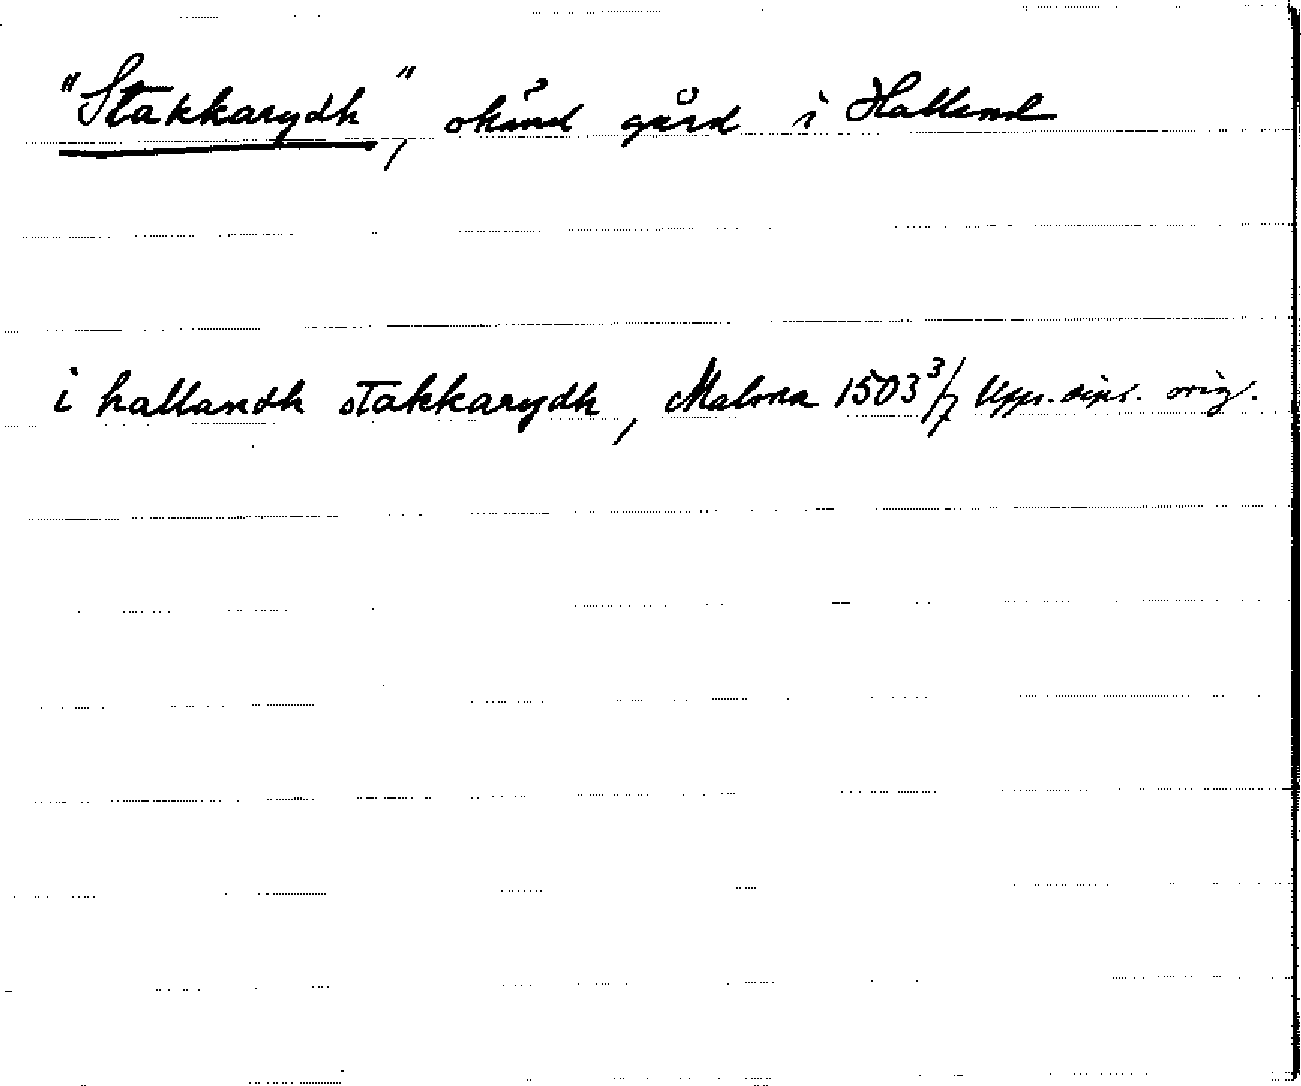 "Stakkarydh", okänd gård i Halland
i hallandh stakkarydh, Malma 1503 3/7 Upps. dipl. orig.